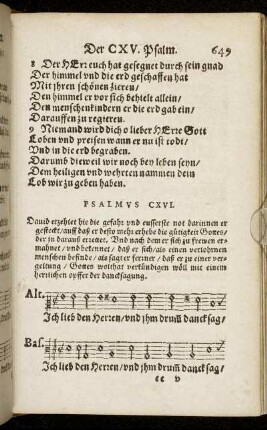 Der CXV. Psalm. 649
8 Der HErr euch hat gesegnet durch sein gnad
Der himmel vnd die erd geschaffen hat
Mit jhren schönen zieren/
Den himmel er vor sich behielt allein/
Den menschenkindern er die erd gab ein/
Darauffen zu regieren.
9 Niemand wird dich o lieber HErre Gott
Loben vnd preisen wann er nu ist todt/
Vnd in die erd begraben.
Darumb dieweil wir noch bey leben seyn/
Dem heiligen vnd wehrten nammen dein
Lob wir zu geben haben.
PSALMVS CXVI.
Dauid erzehlet hie die gefahr vnd eusserste not darinnen er
gesteckt/auff daß er desto mehr erhebe die gütigkeit Gottes/
der in darauß errettet. Vnd nach dem er sich zu frewen er-
mahnet/vnd bekennet/ daß er sich/als einen verlohrnen
menschen befinde/ als sagt er ferrner/ daß er zu einer ver-
geltung/ Gottes wolthat verkündigen wöll mit einem
herrlichen opffer der dancksagung.
Alt.
Jch lieb den Herren/vnd jhm drum̃ danck sag/
Bas.
Jch lieb den Herren/vnd jhm drum̃ danck sag/
tt v